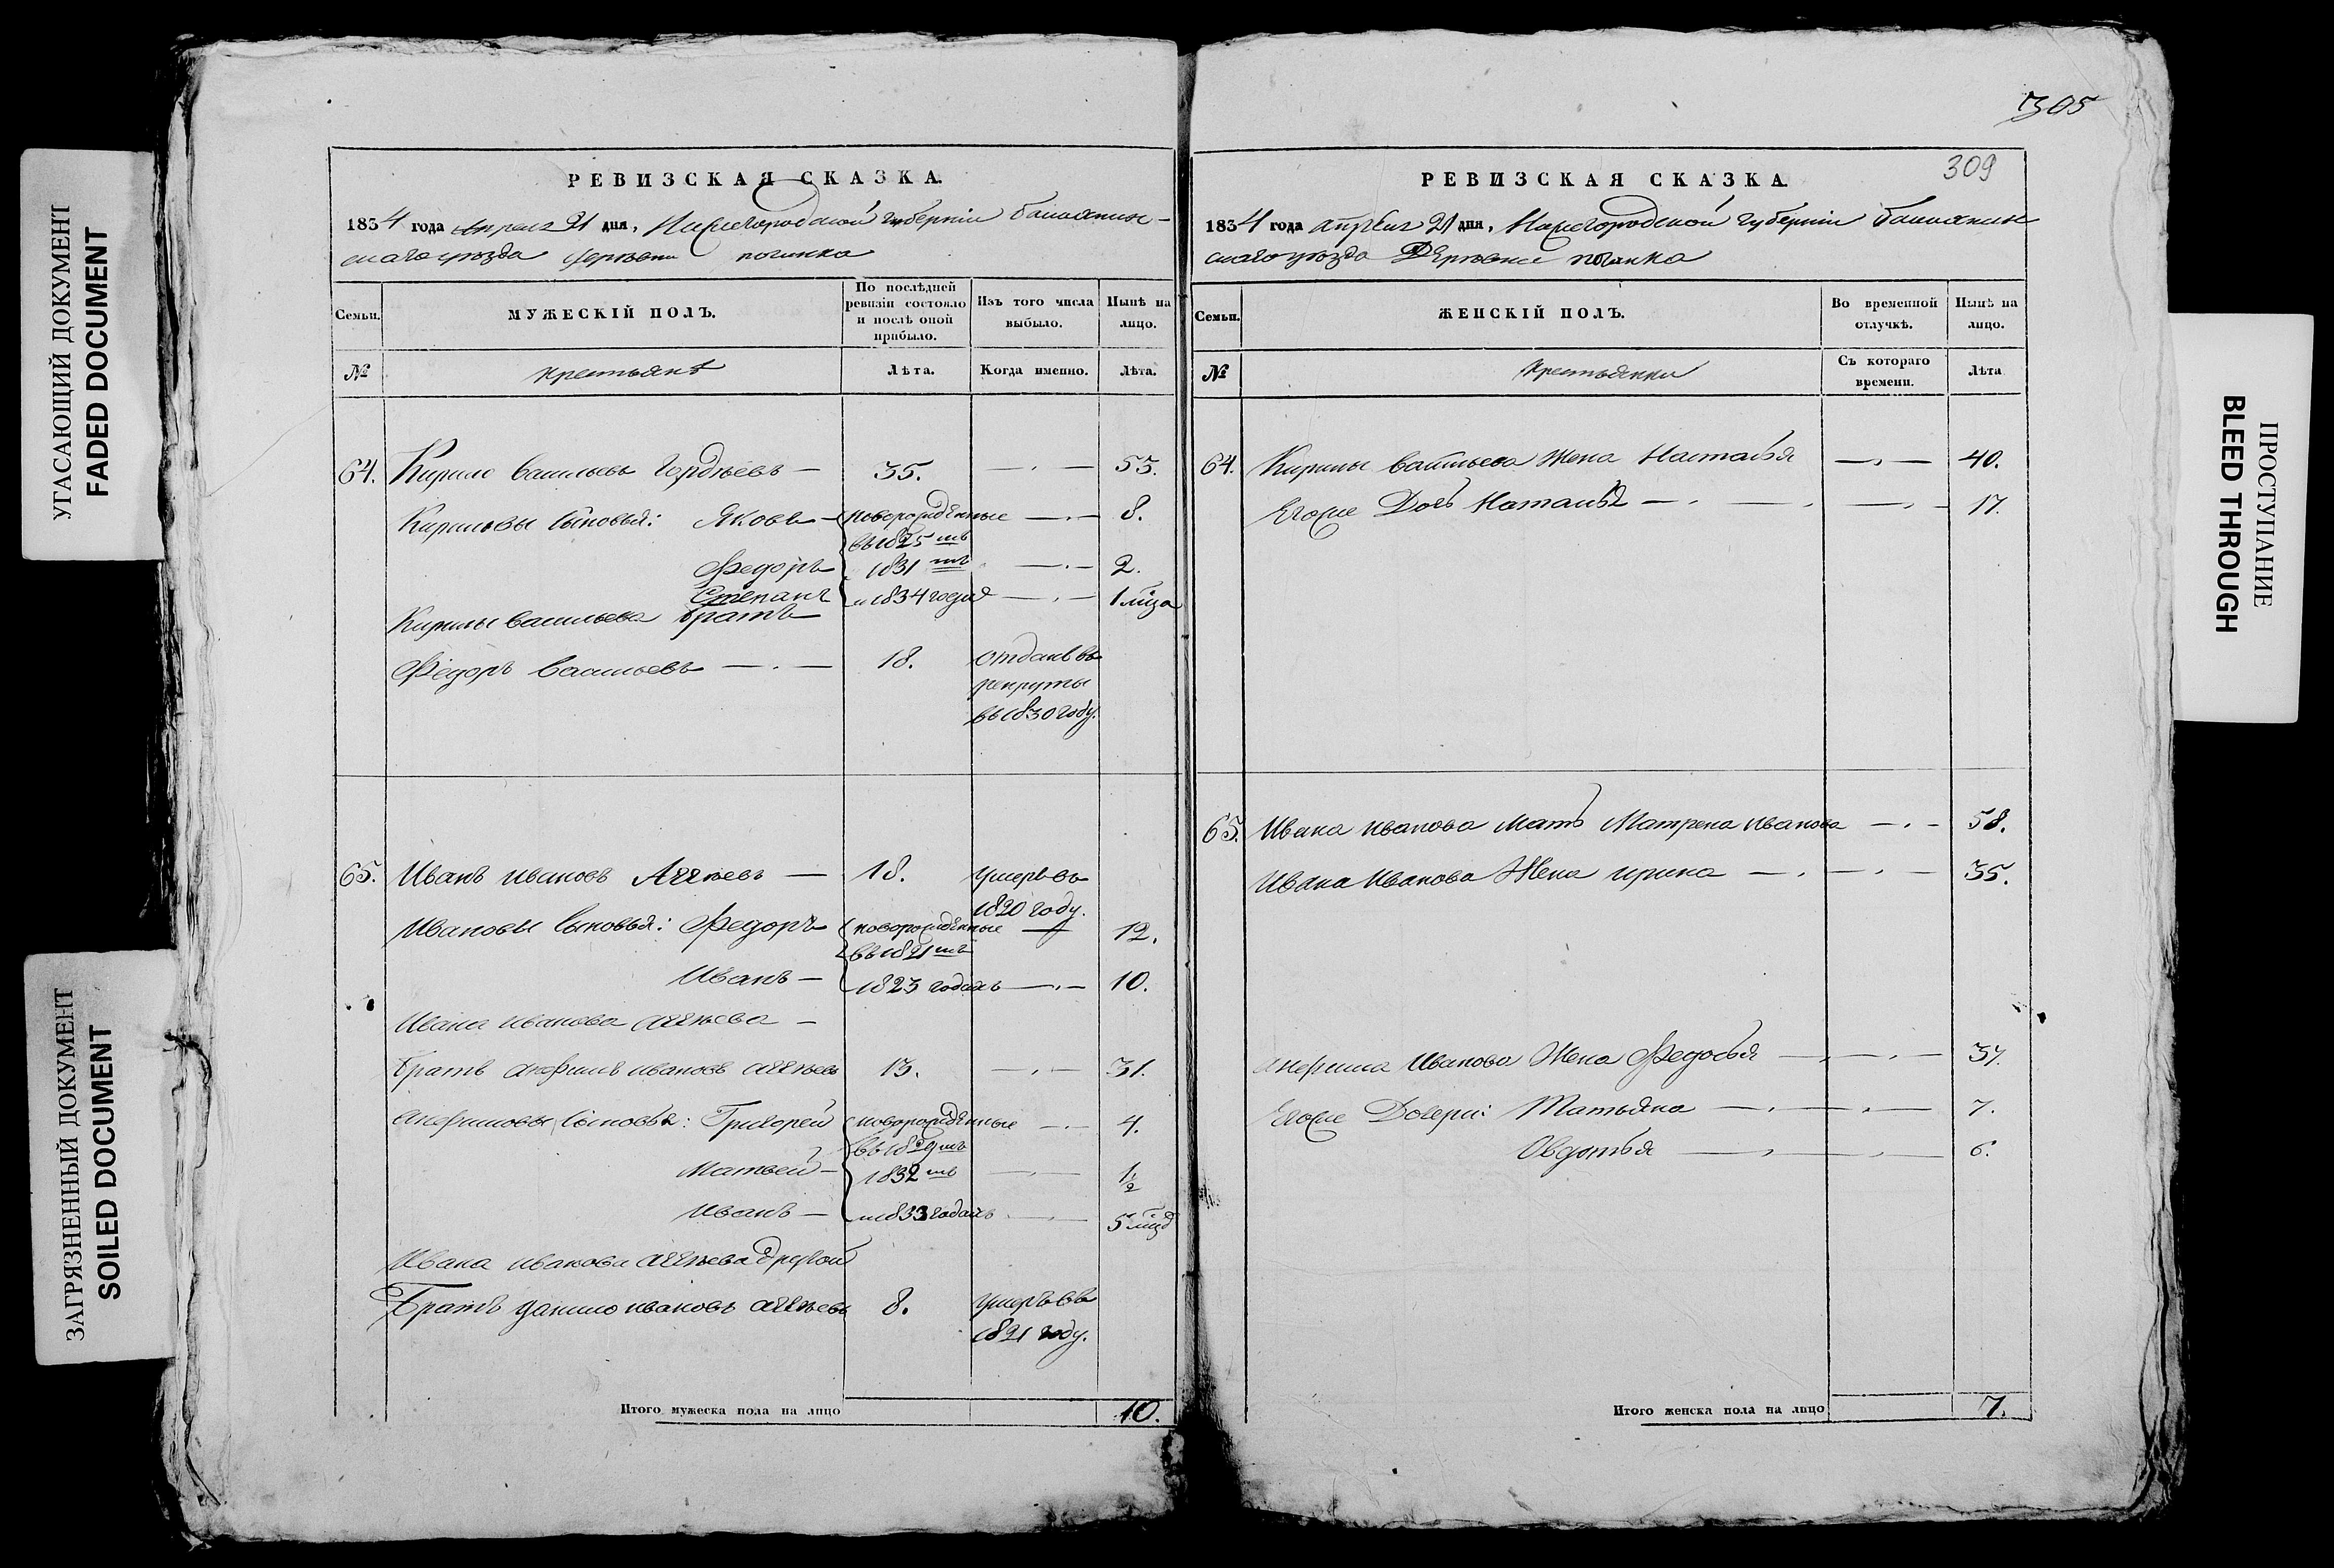 УГАСАЮЩИЙ ДОКУМЕНТ
FADED DOCUMENT
ЗАГРЯЗНЕННЫЙ ДОКУМЕНТ
SOILED DOCUMENT
РЕВИЗСКАЯ СКАЗКА.
1834 года апреля 21 дня, Нижегородской губернии
скаго уезда Деревни починка
Семьи.
МУЖЕСКІЙ ПОЛЪ.
По послѣдней ревизіи состояло и послѣ оной прибыло.
Изъ того числа выбыло.
Нынѣ на лицо.
№
крестьянъ
Лѣта.
Когда именно.
Лѣта.
64. Кирило Васильевъ Гордѣевъ — 35. — . — 55.
Кириловы сыновья: Яковъ — новорожденные — . — 8.
въ 1825 мъ
Федоръ 1831 мъ — . — 2.
Степанъ и 1834 — . — 1
Кирилы Васильева братъ
Федоръ Васильевъ — . — 18. отданъ въ
рекруты
въ 1830 году.
65. Иванъ Ивановъ — 18. умеръ въ
1820 году.
Ивановы сыновья: Федоръ новорожденные — 12.
въ 1821 мъ
Иванъ — 1823 годахъ — . — 10.
Ивана Иванова —
братъ Анфимъ Ивановъ 13. — . — 31.
Анфимовы сыновья: Григорей новорожденные — . — 4.
въ 1829 мъ
Матвей — 1832 мъ — . — 1/2
Иванъ — и 1833 годахъ — . — 5
Ивана Иванова другой
Братъ данило Ивановъ 8. умеръ въ
1821 году.
Итого мужеска пола на лицо 10.
305
309
РЕВИЗСКАЯ СКАЗКА
1834 года апреля 21 дня, Нижегородской губернии
скаго уезда Деревни починка
Семьи.
ЖЕНСКІЙ ПОЛЪ.
Во временной отлучкѣ.
Нынѣ на лицо.
№
крестьянки
Съ котораго времени.
Лѣта
64. Кирилы Васильева Жена Настасья — . — 40.
Егоже Дочь Наталья — . — . — . — 17.
65. Ивана Иванова Мать Матрена Иванова — . — 58.
Ивана Иванова Жена Ирина — . — . — 35.
Анфима Иванова Жена Федосья — . — . — 37.
Егоже Дочери: Татьяна — . — . — 7.
Овдотья — . — . — 6.
Итого женска пола на лицо 7.
ПРОСТУПАНИЕ
BLED THROUGH